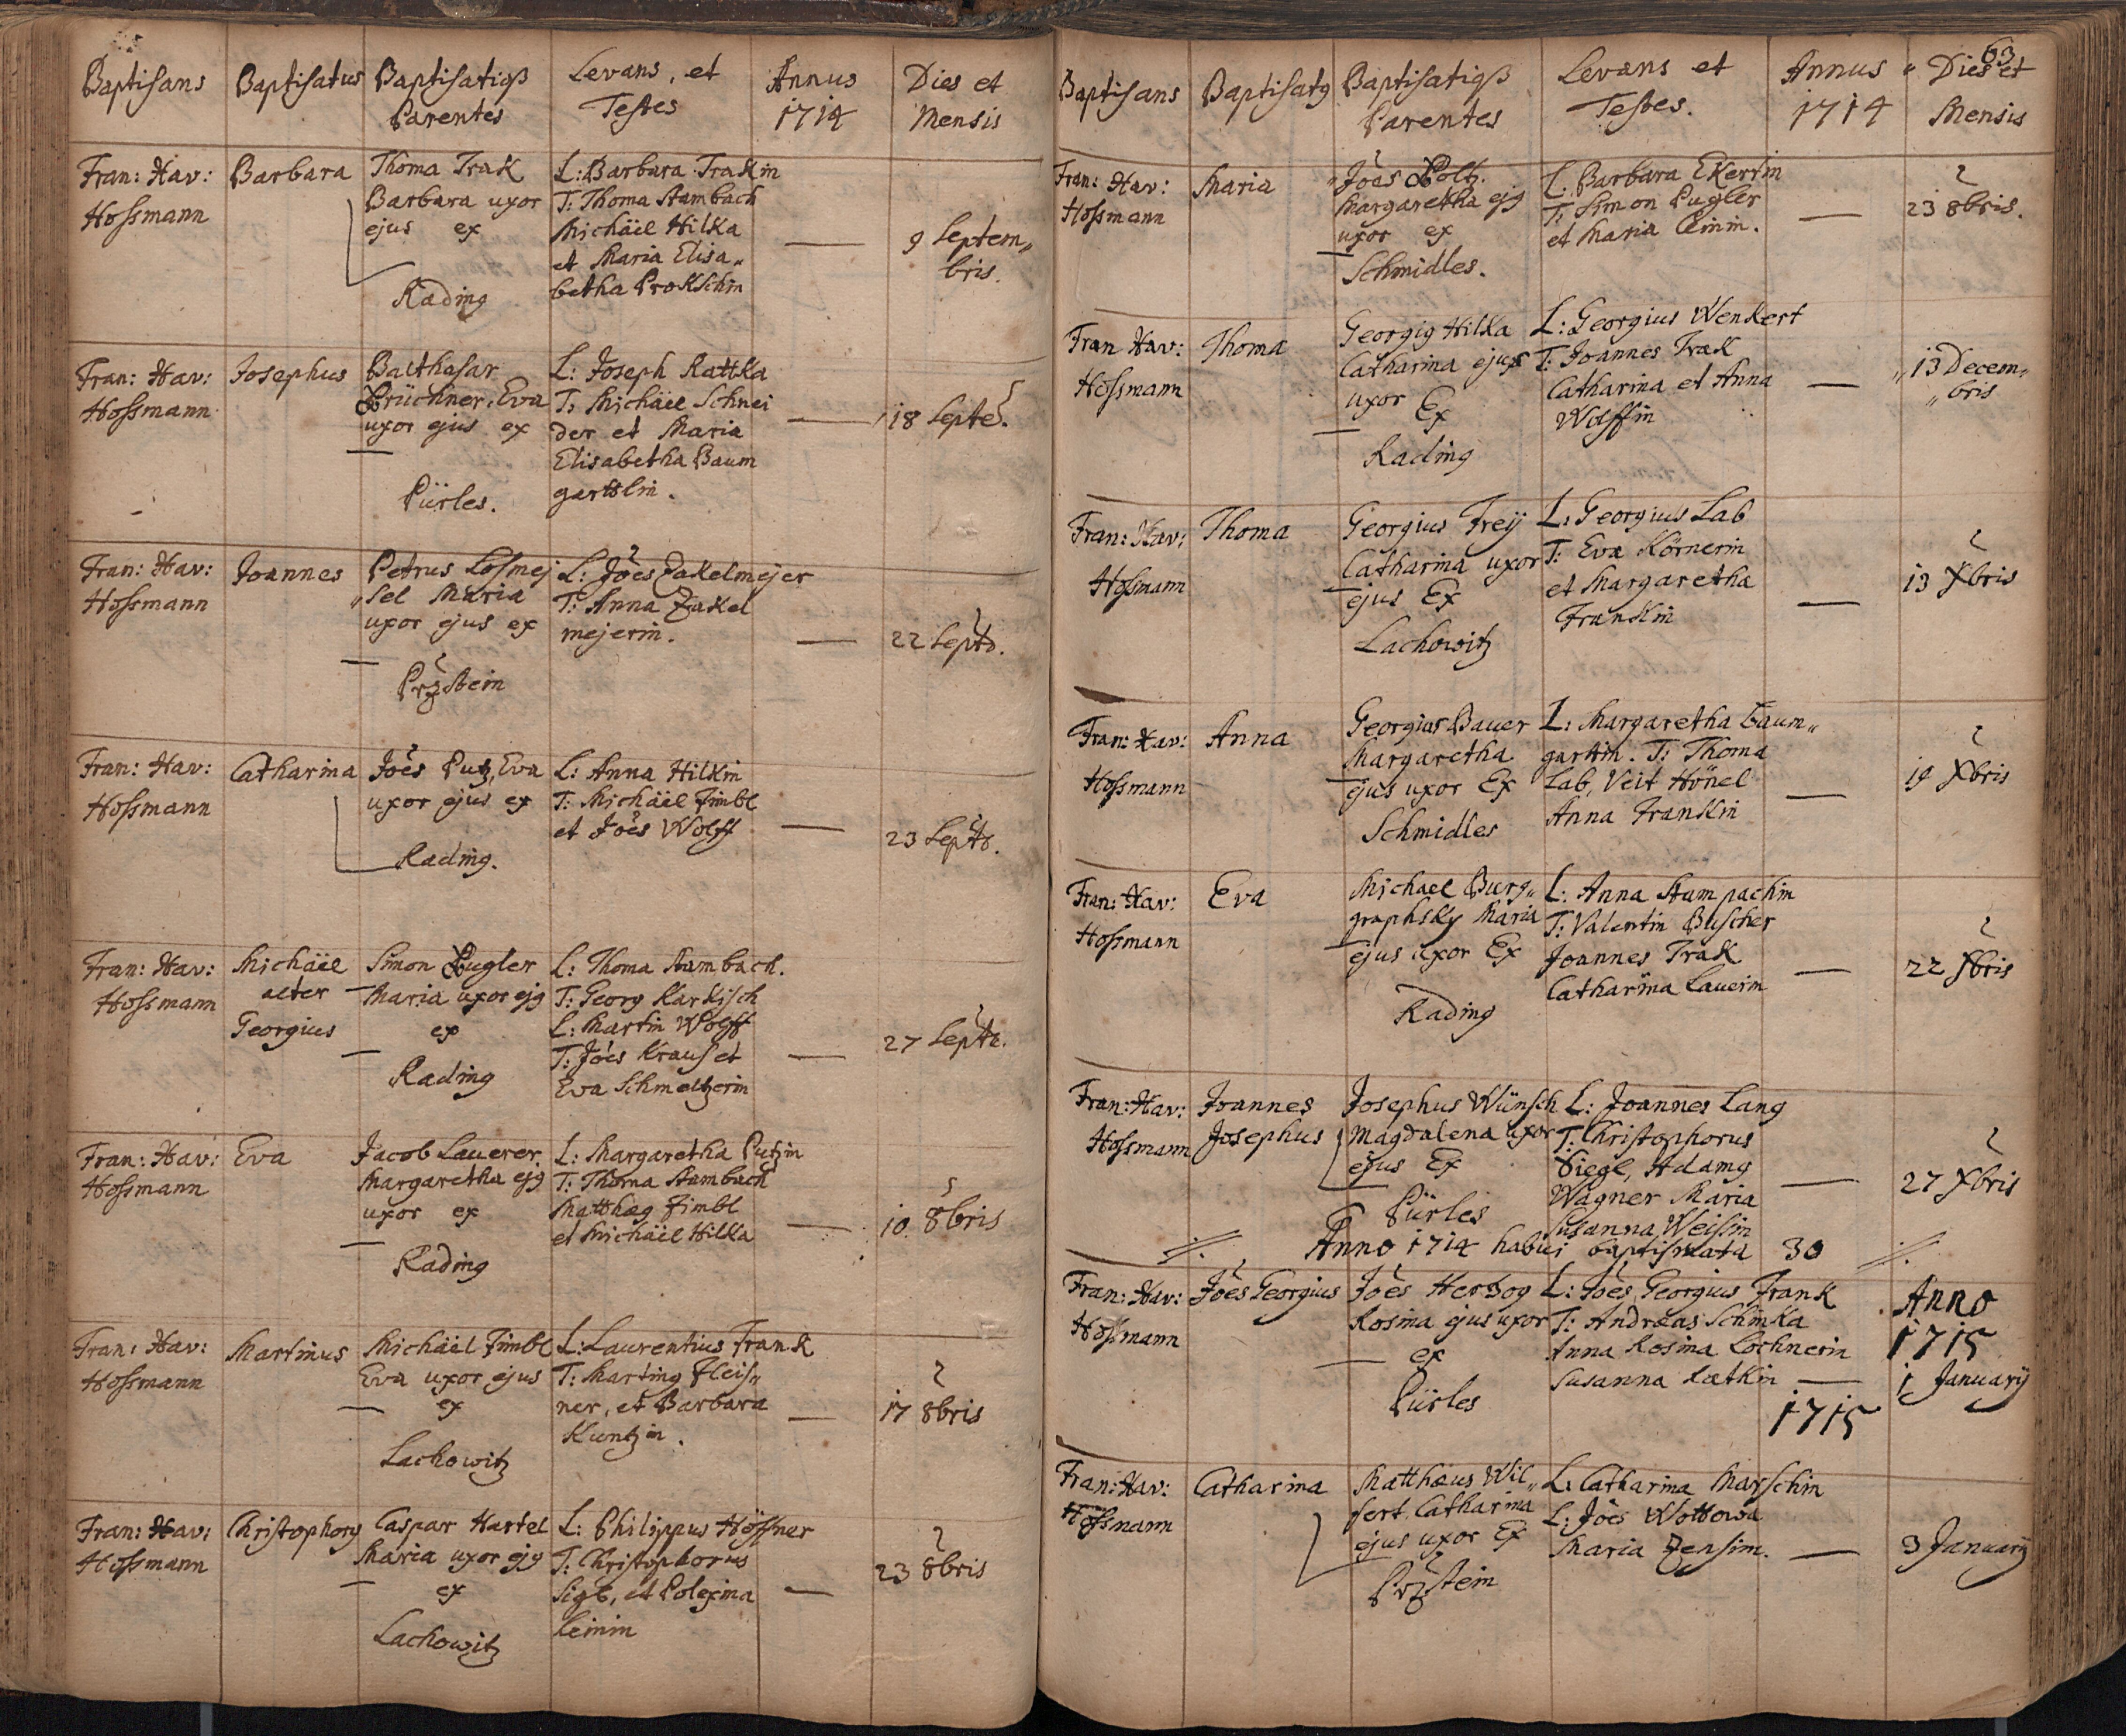 Baptisans
Baptisatus
Baptisatiqß
Parentes
Levans, et
Testes
Annus
1714
Dies et
Mensis
Fran: Xav:
Hossmann
Barbara
Thoma Trak
Barbara uxor
ejus ex
Rading
L: Barbara Trakin
T: Thoma Stambach
Michäel Hilka
et Maria Elisa„
betha Prokschin
9 Septem„
bris.
Fran: Xav:
Hossmann
Josephus
Balthasar
Brüchner, Eva
uxor ejus ex
Pürles.
L: Joseph Rattka
T: Michäel Schnei
der et Maria
Elisabetha Baum
gartlin.
18 Septe.
Fran: Xav:
Hossmann
Joannes
Petrus Losmej
„sel Maria
uxor ejus ex
Przstein
L: Joes Zakelmejer
T: Anna Zakel
mejerin.
22 Septb.
Fran: Xav:
Hossmann
Catharina
Joes Putz, Eva
uxor ejus ex
Rading.
L: Anna Hilkin
T: Michäel Zimbl
et Joes Wolff
23 Septb.
Fran: Xav:
Hossmann
Michäel
alter
Georgius
Simon Pugler
Maria uxor ejg
ex
Rading
L: Thoma Stambach.
T: Georg Karkisch
L: Martin Wolff
T: Joes Kraus et
Eva Schmeltzerin
27 Septb.
Fran: Xav:
Hossmann
Eva
Jacob Lauerer
Margaretha ejg
uxor ex
Rading
L: Margaretha Putzin
T: Thoma Stambach
Matthæg Zimbl
et Michäel Hilka
10. 8bris
Fran: Xav:
Hossmann
Martinus
Michäel Zimbl
Eva uxor ejus
ex
Lachowitz
L: Laurentius Frank
T: Marting Fleis„
ner, et Barbara
Kuntzin.
17 8bris
Fran: Xav:
Hossmann
Christophorg
Caspar Hartel
Maria uxor ejg
ex
Lachowitz
L: Philippus Höffner
T: Christophorus
Sigl, et Polexina
Leinin
23 8bris
63
Baptisans
Baptisatg
Baptisatiqß
Parentes
Levans et
Testes.
Annus
1714
Dies et
Mensis
Fran: Xav:
Hossmann
Maria
Joes Poltz.
Margaretha ejg
uxor ex
Schmidles.
L: Barbara Ekertin
T: Simon Pugler
et Maria
23 8bris.
Fran Xav:
Hossmann
Thoma
Georgig Hilka
Catharina ejus
uxor Ex
Rading
L: Georgius Wenkert
T: Joannes Trak
Catharina et Anna
Wolffin
„13 Decem„
„bris
Fran: Xav:
Hossmann
Thoma
Georgius Freÿ
Catharina uxor
ejus Ex
Lachowitz
L: Georgius Lab
T: Eva Körnerin
et Margaretha
Frankin
13 Xbris
Fran: Xav:
Hossmann
Anna
Georgius Bauer
Margaretha
ejus uxor Ex
Schmidles
L: Margaretha Baum„
gartin. T: Thoma
Lab, Veit Hönel
Anna Frankin
19 Xbris
Fran: Xav:
Hossmann
Eva
Michael Burg„
graphsky Maria
ejus uxor Ex
Rading
L: Anna Stampachin
T: Valentin Buscher
Joannes Trak
Catharina Lauerin
22 Xbris
Fran: Xav:
Hossmann
Joannes
Josephus
Josephus Wünsch
Magdalena uxor
ejus Ex
Pürles
L: Joannes Lang
T: Christophorus
Siegl, Adamg
Wagner Maria
Susanna Weisin
27 Xbris
Anno 1714 habui baptismata 30
Fran: Xav:
Hossmann
Joes Georgius
Joes Hertzog
Rosina ejus uxor
ex
Pürles
L: Joes Georgius Frank
T: Andreas Schinka
Anna Rosina Lochnerin
Susanna Ratkin
1715
Anno
1715
1 Januarÿ
Fran: Xav:
Hossmann
Catharina
Matthæus Wil„
fert Catharina
ejus uxor Ex
Przstein
L: Catharina Marschin
L: Joes Wottowa
Maria Zensin.
3 Januarÿ